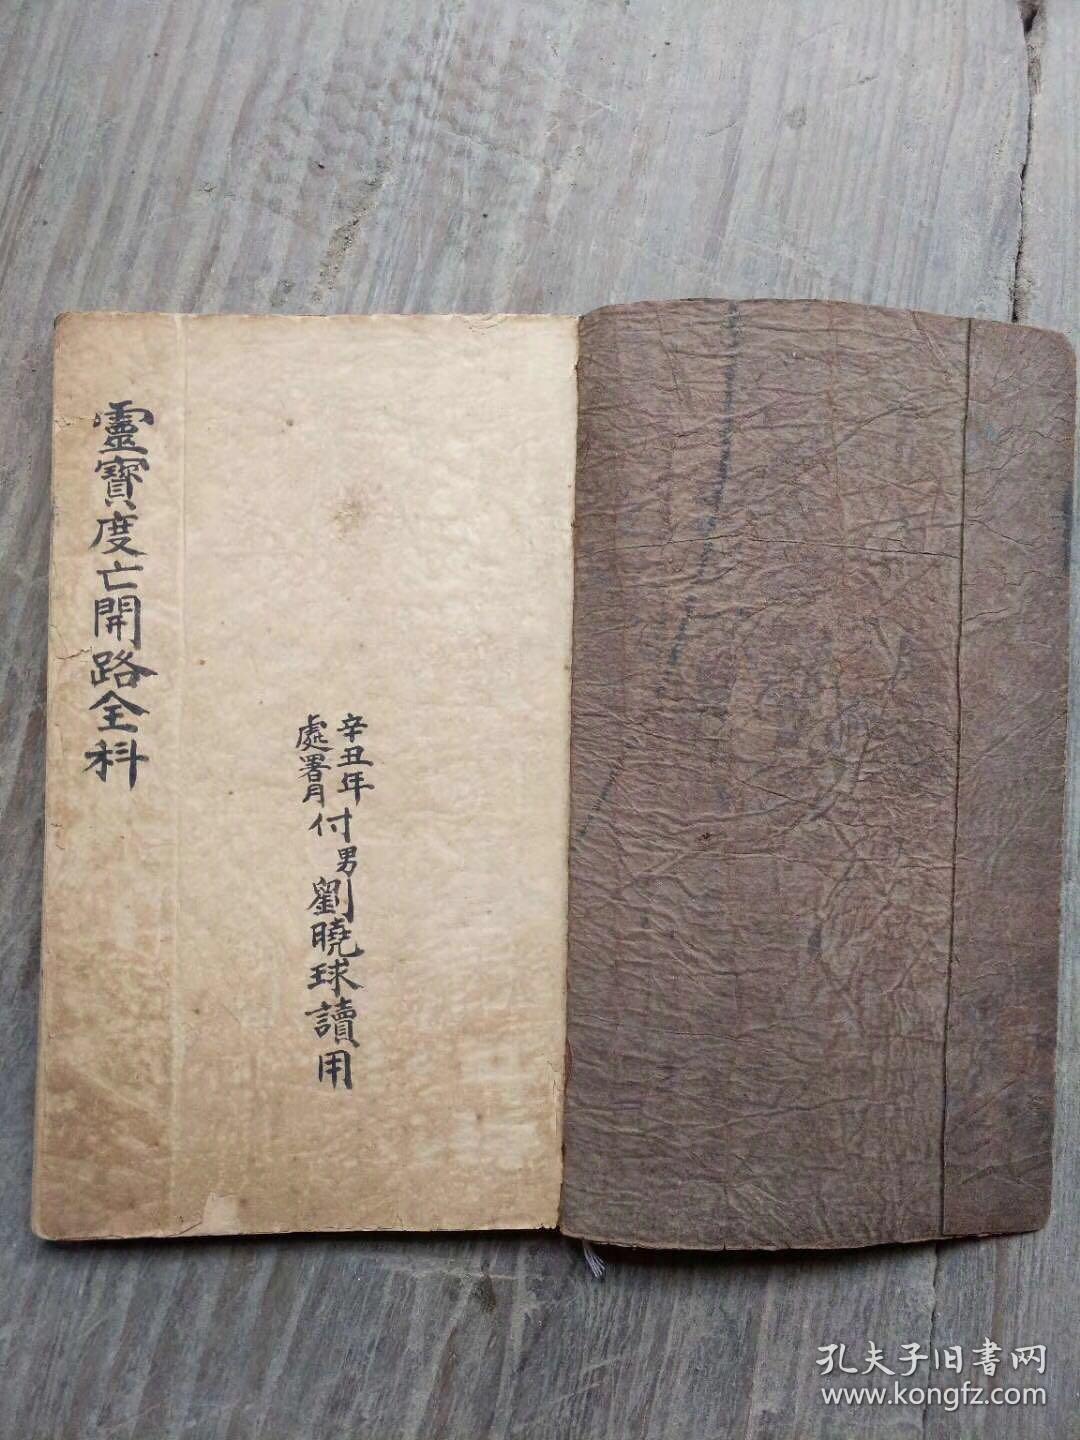 辛丑年
處署月
付男劉曉球讀用
靈寶度亡開路全科
孔夫子旧書网
www.kongfz.com